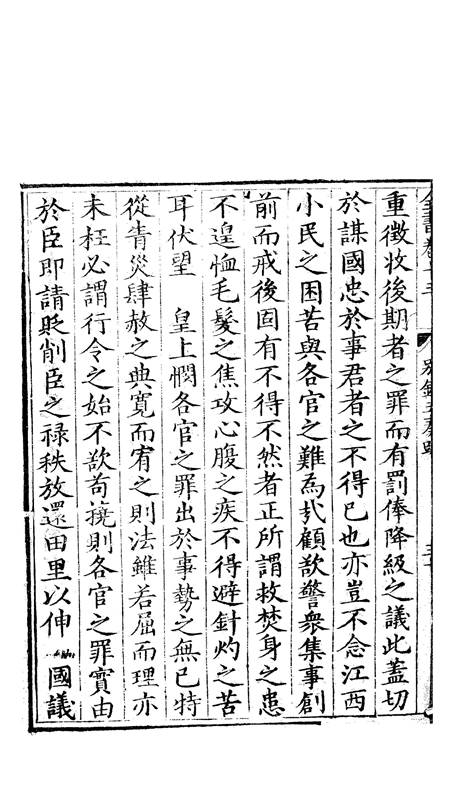 重徵收後期者之罪而有罰俸降級之議此蓋切
於謀國忠於事君者之不得已也亦豈不念江西
小民之困苦與各官之難為哉顧欲警衆集事創
前而戒後固有不得不然者正所謂救焚身之患
不遑恤毛髮之焦攻心腹之疾不得避針灼之苦
耳伏望 皇上憫各官之罪出於事勢之無已特
從眚災肆赦之典寬而宥之則法雖若屈而理亦
未枉必謂行令之始不欲苟撓則各官之罪實由
於臣即請貶削臣之禄秩放還田里以伸 國議